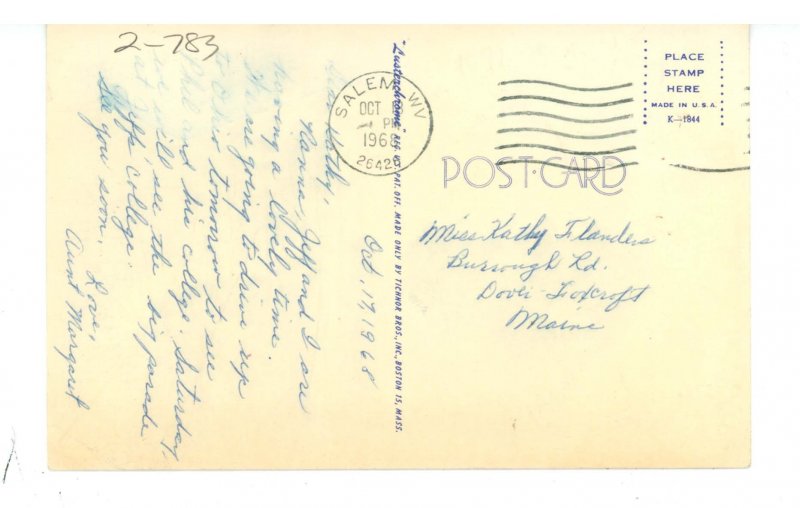 2-783
Oct. 17, 1968
Dear Kathy,
Nanna, Jeff and I are
having a lovely time.
We are going to drive up
to Ohio tomorrow to see
Phil and his college. Saturday,
we will see the big parade
at Jeff's college.
See you soon.
Love,
Aunt Margaret
"Lusterchrome" REG. U.S. PAT. OFF. MADE ONLY BY TICHNOR BROS., INC., BOSTON 15, MASS.
SALEM WV
OCT
PM
1968
26426
PLACE
STAMP
HERE
MADE IN U.S.A.
K-1844
POST-CARD
Miss Kathy Flanders
Burrough Rd.
Dover-Foxcroft
Maine